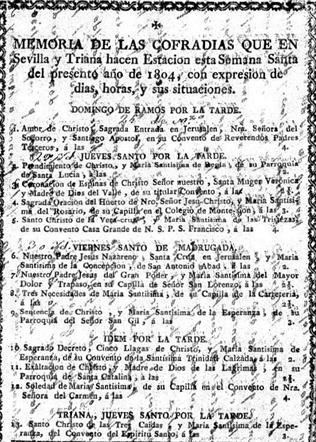 MEMORIA DE LAS COFRADIAS QUE EN
Sevilla y Triana hacen Estacion esta Semana Santa
del presente año de 1804, con expresion de
dias, horas, y sus situaciones.
DOMINGO DE RAMOS POR LA TARDE.
1. Amor de Christo, Sagrada Entrada en Jerusalen, Nra. Señora del
Socorro, y Santiago Apostol, en su Convento de Reverendos Padres
Terceros, á las
JUEVES SANTO POR LA TARDE.
2. Prendimiento de Christo, y Maria Santisima de Regla, de su Parroquia
de Santa Lucia, á las
3. Coronacion de Espinas de Christo Señor nuestro, Santa Muger Verónica
y Madre de Dios del Valle, de su titular Convento, á las
4. Sagrada Oracion del Huerto de Nro. Señor Jesu-Christo, y Maria Santisi-
ma del Rosario, de su Capilla en el Colegio de Monte-sion, á las 3.
5. Santo Christo de la Vera-cruz, y Maria Santisima de las Tristezas,
de su Convento Casa Grande de N. S. P. S. Francisco, á las
VIERNES SANTO DE MADRUGADA,
6. Nuestro Padre Jesus Nazareno, Santa Cruz en Jerusalen, y Maria
Santisima de la Concepcion, de San Antonio Abad, á las 2.
7. Nuestro Padre Jesus del Gran Poder, y Maria Santisima del Mayor
Dolor y Traspaso, en su Capilla de Señor San Lorenzo, á las
8. Tres Necesidades de Maria Santisima, de su Capilla de la Carreteria,
á las
9. Sentencia de Christo, y Maria Santisima de la Esperanza, de su
Parroquia del Señor San Gil, á las 3.
IDEM POR LA TARDE.
10. Sagrado Decreto, Cinco Llagas de Christo, y Maria Santisima de
Esperanza, de su Convento de la Santisima Trinidad Calzada, á las 2.
11. Exaltacion de Christo, y Madre de Dios de las Lagrimas, en su
Parroquia de Santa Catalina, á las
12. Soledad de Maria Santisima, de su Capilla en el Convento de Nra.
Señora del Carmen, á las
TRIANA, JUEVES SANTO POR LA TARDE,
13. Santo Christo de las Tres Caidas, y Maria Santisima de la Espe-
ranza, del Convento del Espiritu Santo, á las 3.